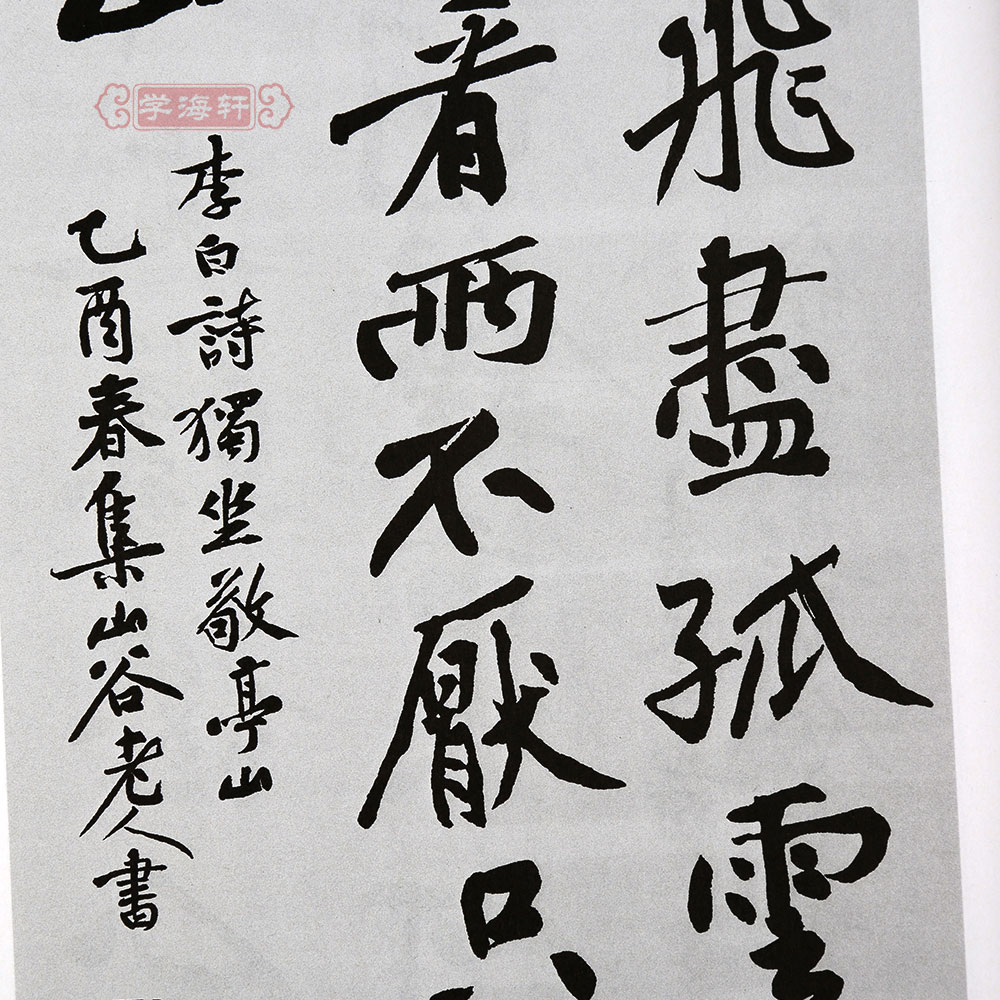 飛盡孤雲
看兩不厭只
山
李白詩獨坐敬亭山
乙酉春集山谷老人書
学海轩